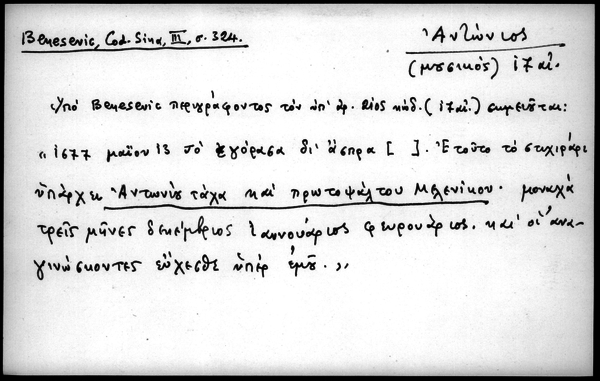 Benesevic, Cod. Sina, III, σ. 324.
Ἀντώνιος
(μυσικός) 17 αἰ.
Ὑπό Benesevic περιγράφοντος τόν ὑπ' ἀρ. κώδ. (17 αἰ.) σημειοῦται:
"1677 μαΐου 13 τό ἐγόρασα δι' ἄσπρα [ ]. Ἐτοῦτο τό στιχιράρι
ὑπάρχει Ἀντωνίου τάχα καί πρωτοψάλτου Μελενίκου. μοναχά
τρεῖς μῆνες δεκέμβριος ἰαννουάριος φευρουάριος. καί οἱ ἀνα-
γινώσκοντες εὔχεσθε ὑπέρ ἐμοῦ."